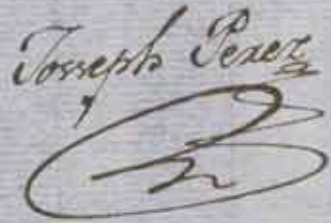 Josseph Perez